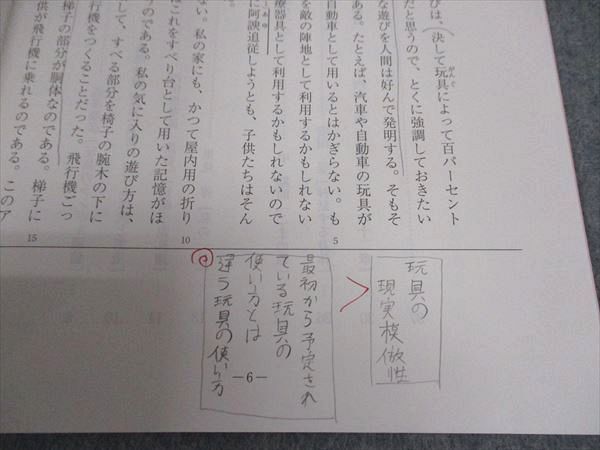 びは、(決して玩具によって百パーセント
がんぐ
だと思うので、とくに強調しておきたい
な遊びを人間は好んで発明する。そもそ
ある。たとえば、汽車や自動車の玩具が
自動車として用いるとはかぎらない。も
を敵の陣地として利用するかもしれない
療器具として利用するかもしれないので
に阿諛追従しようとも、子供たちはそん
ない。私の家にも、かつて屋内用の折り
これをすべり台として用いた記憶がほ
のである。私の気に入りの遊び方は、
して、すべる部分を椅子の腕木の下に
飛行機をつくることだった。飛行機ごっ
梯子の部分が胴体なのである。梯子に
供が飛行機に乗れるのである。このア
5
10
15
玩具の
現実模倣性
最初から予定され
ている玩具の
使い方とは
違う玩具の使い方
—6—